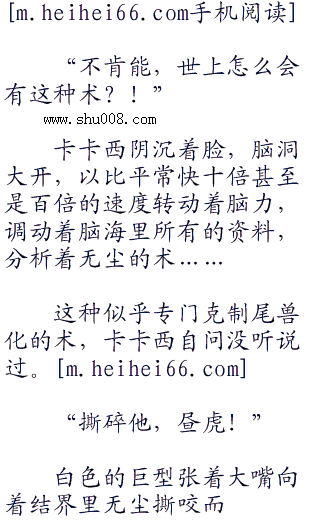 [m.heihei66.com手机阅读]
“不肯能，世上怎么会
有这种术？！”
www.shu008.com
卡卡西阴沉着脸，脑洞
大开，以比平常快十倍甚至
是百倍的速度转动着脑力，
调动着脑海里所有的资料，
分析着无尘的术……
这种似乎专门克制尾兽
化的术，卡卡西自问没听说
过。[m.heihei66.com]
“撕碎他，昼虎！”
白色的巨型张着大嘴向
着结界里无尘撕咬而